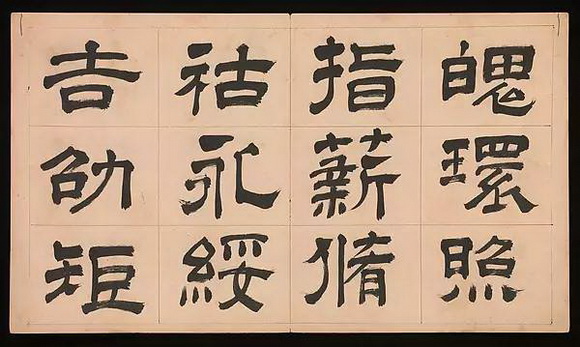 魄環照
指薪脩
祜永綏
吉劭矩